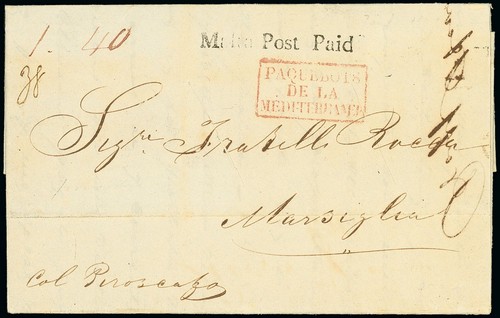 1. 40
Malta Post Paid
38
PAQUEBOTS
DE LA
MÉDITERRANÉE
Sigri Fratelli Rocca
Marsiglia
Col Piroscafo